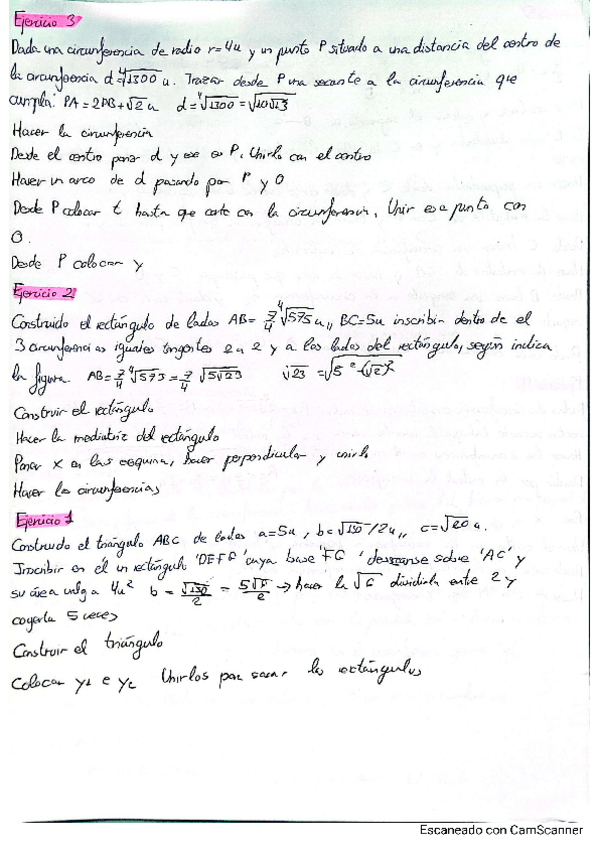 Ejercicio 3
Dada una circunferencia de radio r=4u y un punto P situado a una distancia del centro de
la circunferencia d=⁴√1300 u. Trazar desde P una secante a la circunferencia que
cumpla: PA=2AB+√2 u d=⁴√1300=√10√13
Hacer la circunferencia
Desde el centro poner d y ese es P. Unirlo con el centro
Hacer un arco de d pasando por P y O
Desde P colocar t hasta que corte con la circunferencia, Unir ese punto con
O.
Desde P colocar y
Ejercicio 2
Construido el rectángulo de lados AB= 7/4 ⁴√575 u,, BC=5u inscribir dentro de el
3 circunferencias iguales tangentes 2 a 2 y a los lados del rectángulo, según indica
la figura. AB=7/4 ⁴√575=7/4 √5√23 √23=√5²-(√2)²
Construir el rectángulo
Hacer la mediatriz del rectángulo
Poner x en las esquina, hacer perpendicular y unirlo
Hacer las circunferencias
Ejercicio 1
Construido el triángulo ABC de lados a=5u, b=√150/2u,, c=√20 u.
Inscribir en él un rectángulo 'DEFG' cuya base 'FG' descanse sobre 'AC' y
su área valga 4u² b=√150/2 = 5√6/2 → hacer la √6 dividirla entre 2 y
cogerla 5 veces
Construir el triángulo
Colocar y1 e y2 Unirlos para sacar los rectángulos
Escaneado con CamScanner